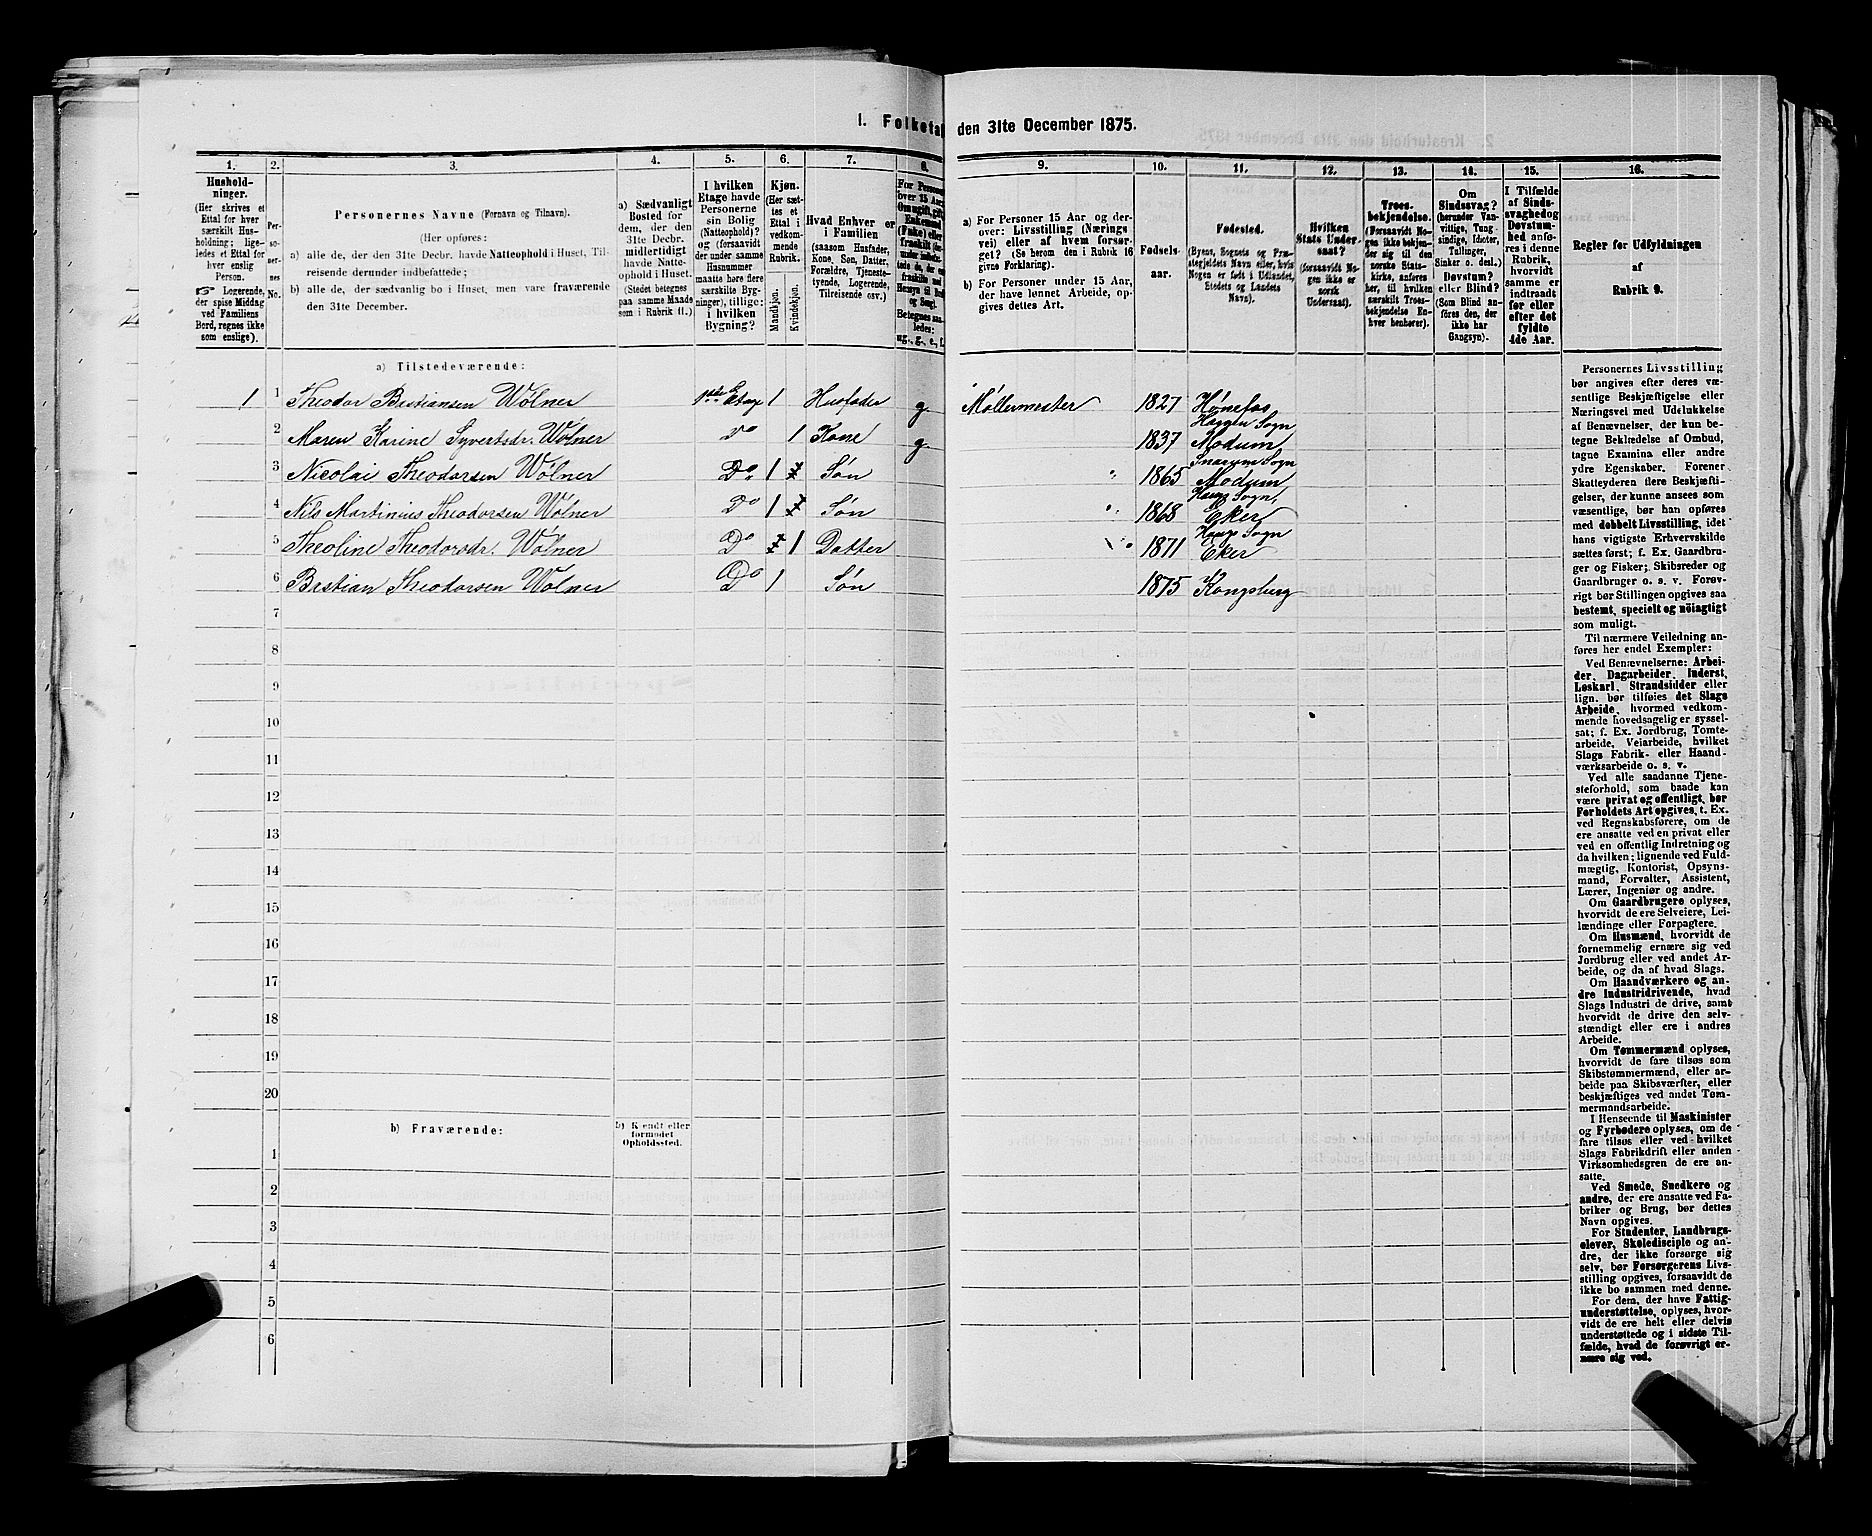 1. Folketal den 31te December 1875.
1. 2. 3. 4. 5. 6. 7. 8. 9. 10. 11. 12. 13. 14. 15. 16.
Husholdninger.
(Her skrives et
Ettal for hver
særskilt Husholdning;
ligeledes
et Ettal for
hver enslig
Person.
Logerende,
der spise Middag
ved Familiens
Bord, regnes ikke
som enslige).
Personernes
No.
Personernes Navne (Fornavn og Tilnavn).
(Her opføres:
a) alle de, der den 31te Decbr. havde Natteophold i Huset, Tilreisende
derunder indbefattede;
b) alle de, der sædvanlig bo i Huset, men vare fraværende
den 31te December.
a) Sædvanligt
Bosted for
dem, der den
31te Decbr.
midlertidigt
havde Natteophold
i Huset.
(Stedet betegnes
paa samme Maade
som i Rubrik 11.)
I hvilken
Etage havde
Personerne
sin Bolig
(Natteophold)?
og (forsaavidt
der under samme
Husnummer
maatte høre flere
særskilte Bygninger),
tillige:
i hvilken
Bygning?
Kjøn.
(Her sættes
et
Ettal i
vedkommende
Rubrik.
Mandkjøn.
Kvindekjøn.
Hvad Enhver er
i Familien
(saasom Husfader,
Kone, Søn, Datter,
Forældre, Tjenestetyende,
Logerende,
Tilreisende osv.)
a) For Personer 15 Aar og derover:
Livsstilling (Næringsvei)
eller af hvem forsørget?
(Se herom den i Rubrik 16
givne Forklaring).
b) For Personer under 15 Aar,
der have lønnet Arbeide, opgives
dettes Art.
Fødselsaar.
Fødested.
(Byens, Sognets og Præstegjeldets
Navn eller, hvis
Nogen er født i Udlandet,
Stedets og Landets
Navn).
Hvilken
Stats Undersaat?
(forsaavidt Nogen
ikke er
norsk
Undersaat).
Troesbekjendelse.
(Forsaavidt Nogen
ikke bekjender
sig til den
norske Statskirke,
anføres
her, til hvilken
særskilt Troesbekjendelse
Enhver
henhører).
Om
Sindssvag?
(herunder Vanvittige,
Tungsindige,
Idioter,
Tullinger,
Sinker o. desl.)
Døvstum?
eller Blind?
(Som Blind anføres
den, der
ikke har
Gangsyn).
I Tilfælde
af Sindssvaghed
og
Døvstumhed
anføres
i denne
Rubrik,
hvorvidt
samme er
indtraadt
før eller
efter det
fyldte
4de Aar.
Regler for Udfyldningen
af
Rubrik 9.
a) Tilstedeværende:
1 1 Theodor Bestiansen Wölner 1ste Etage 1 Husfader g Møllermester 1827 Hønefos
2 Maren Karine Syvertsdr. Wölner Do 1 Kone g 1837 Haggen Sogn Modum
3 Nicolai Theodorsen Wölner Do 1 Søn 1865 Snarum Sogn Modum
4 Nils Martinius Theodorsen Wölner Do 1 Søn 1868 Haugs Sogn, Eker
5 Theoline Theodorsdr. Wölner Do 1 Datter 1871 Haugs Sogn Eker
6 Bestian Theodorsen Wölner Do 1 Søn 1875 Kongsberg
7
8
9
10
11
12
13
14
15
16
17
18
19
20
b) Fraværende:
b) Kendt eller
formodet
Opholdssted.
1
2
3
4
5
6
Personernes Livsstilling
bør angives efter deres væsentlige
Beskjæftigelse eller
Næringsvei med Udelukkelse
af Benævnelser, der kun betegne
Beklædelse af Ombud,
tagne Examina eller andre
ydre Egenskaber. Forener
Skatteyderen flere Beskjæftigelser,
der kunne ansees som
væsentlige, bør han opføres
med dobbelt Livsstilling, idet
hans vigtigste Erhvervskilde
sættes først; f. Ex. Gaardbruger
og Fisker; Skibsreder og
Gaardbruger o. s. v. Forøvrigt
bør Stillingen opgives saa
bestemt, specielt og nöiagtigt
som muligt.
Til nærmere Veiledning anføres
her endel Exempler:
Ved Benævnelserne: Arbeider,
Dagarbeider, Inderst,
Løskarl, Strandsidder eller
lign. bør tilføies det Slags
Arbeide, hvormed vedkommende
hovedsagelig er sysselsat;
f. Ex. Jordbrug, Tomtearbeide,
Veiarbeide, hvilket
Slags Fabrik- eller Haandværksarbeide
o. s. v.
Ved alle saadanne Tjenesteforhold,
som baade kan
være privat og offentligt, bør
Forholdets Art opgives, t. Ex.
ved Regnskabsførere, om de
ere ansatte ved en privat eller
ved en offentlig Indretning og
da hvilken; lignende ved Fuldmægtig,
Kontorist, Opsynsmand,
Forvalter, Assistent,
Lærer, Ingeniør og andre.
Om Gaardbrugere oplyses,
hvorvidt de ere Selveiere, Leilændinge
eller Forpagtere.
Om Husmænd, hvorvidt de
fornemmelig ernære sig ved
Jordbrug eller ved andet Arbeide,
og da af hvad Slags.
Om Haandværkere og andre
Industridrivende, hvad
Slags Industri de drive, samt
hvorvidt de drive den selvstændigt
eller ere i andres
Arbeide.
Om Tømmermænd oplyses,
hvorvidt de fare tilsøs som
Skibstømmermænd, eller arbeide
paa Skibsværfter, eller
beskjæftiges ved andet Tømmermandsarbeide.
I Henseende til Maskinister
og Fyrbødere oplyses, om de
fare tilsøs eller ved hvilket
Slags Fabrikdrift eller anden
Virksomhedsgren de ere ansatte.
Ved Smede, Snedkere og
andre, der ere ansatte ved Fabriker
og Brug, bør dettes
Navn opgives.
For Studenter, Landbrugselever,
Skoledisciple og andre,
der ikke forsørge sig
selv, bør Forsørgerens Livsstilling
opgives, forsaavidt de
ikke bo sammen med denne.
For dem, der have Fattigunderstøttelse,
oplyses, hvorvidt
de ere helt eller delvis
understøttede og i sidste Tilfælde,
hvad de forøvrigt ernære
sig ved.